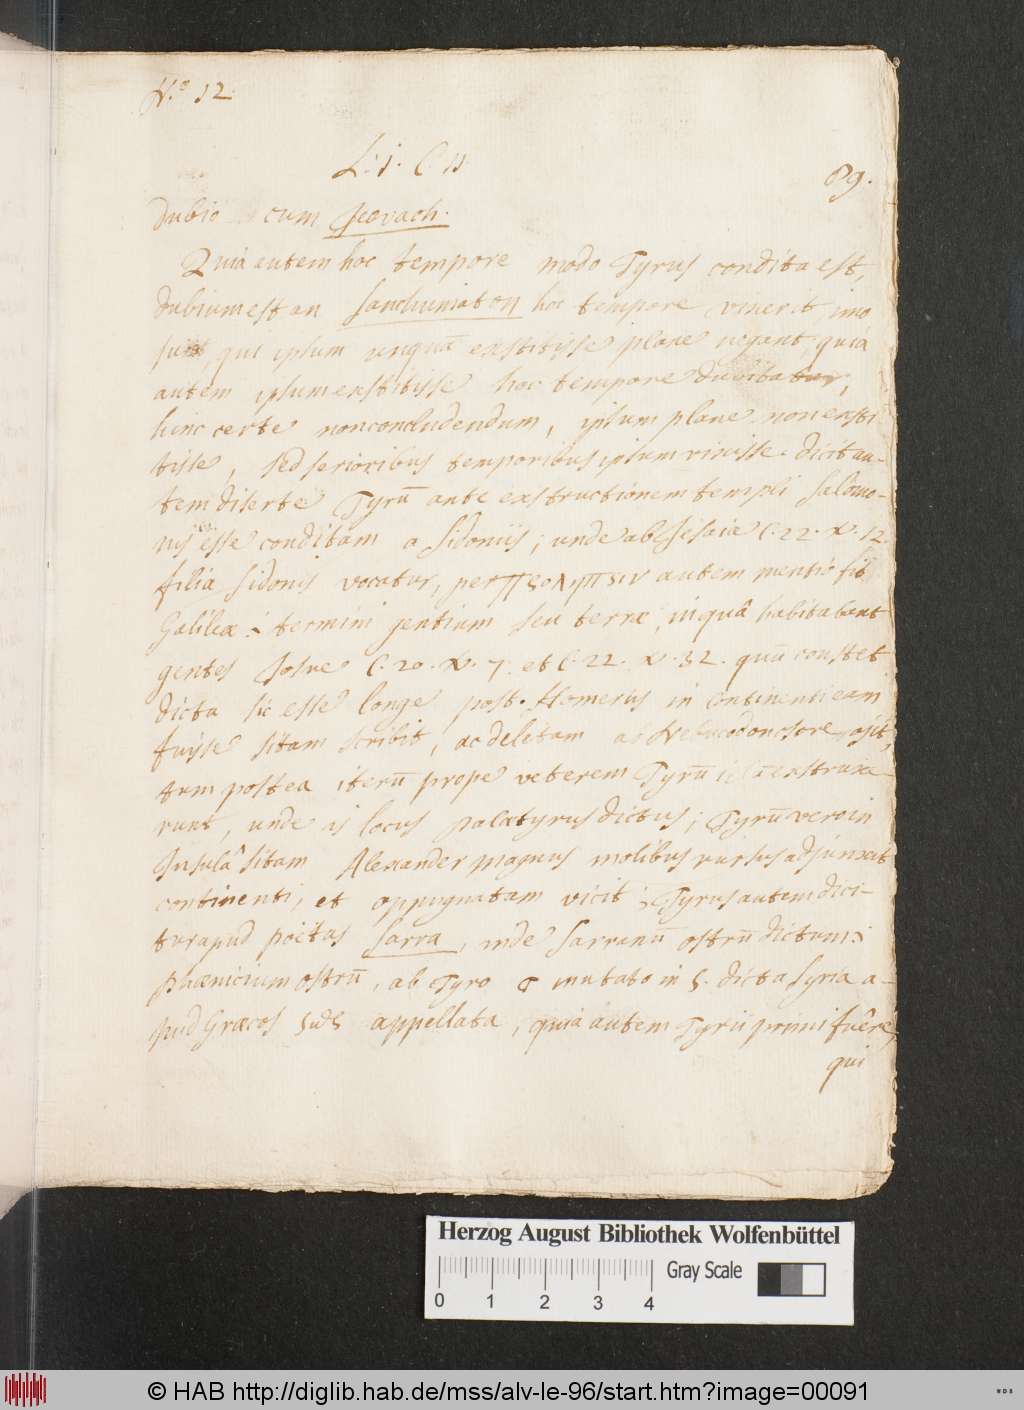 N.º 12
L. 1. C 11
89.
dubio cum Jeovach.
Quia autem hoc tempore modo Tyrus condita est,
dubium est an Sanchuniaton hoc tempore vixerit imo
sunt, qui ipsum unquā exstitisse plane negant, quia
autem ipsum exstitisse hoc tempore dubitatur,
hinc certe non concludendum, ipsum plane non exsti
tisse, sed serioribus temporibus ipsum vixisse. dicit au-
tem diserte Tyrū ante exstructionem templi Salomo-
nis esse conditam a Sidoniis; unde ab Jesaia C. 22. V. 12.
filia Sidonis vocatur, per autem mentio fit
Galileæ termini gentium seu terræ, in quâ habitabant
gentes Josue C. 20. V. 7. et C. 22. V. 32. quū constet
dicta sic esse longe post. Homerus in Continenti eam
fuisse sitam scribit, ac deletam a Nebucodonosore ajit,
tum postea iterū prope veterem Tyrū exstruxe
runt, unde is locus palætyrus dictus; Tyrū vero in
Insulâ sitam Alexander magnus molibus rursus adjunxit
continenti, et oppugnatam vicit; Tyrus autem dici-
tur apud poëtas Sarra, inde Sarranū ostrū dictum:
phænicium ostrū, ab Tyro T mutato in S. dicta Syria a-
pud Græcos appellata, quia autem Tyrii primi fuêre,
qui
Herzog August Bibliothek Wolfenbüttel
Gray Scale
0 1 2 3 4
© HAB http://diglib.hab.de/mss/alv-le-96/start.htm?image=00091